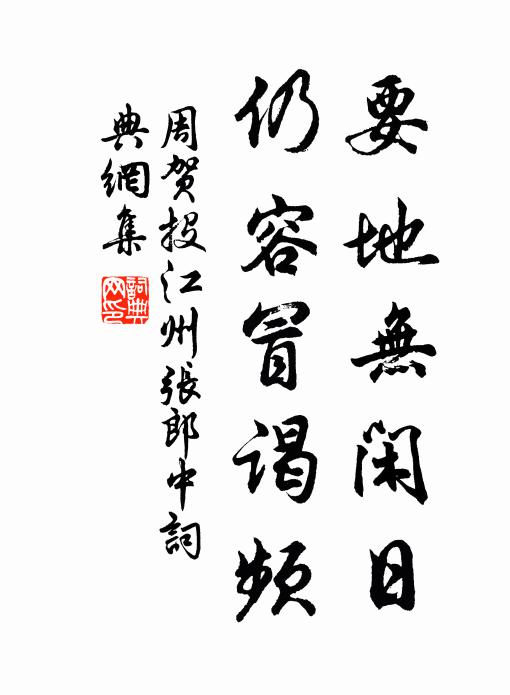 要地無閑日
仍容冒謁頻
周賀投江州張郎中詞
典網集
詞典
网印